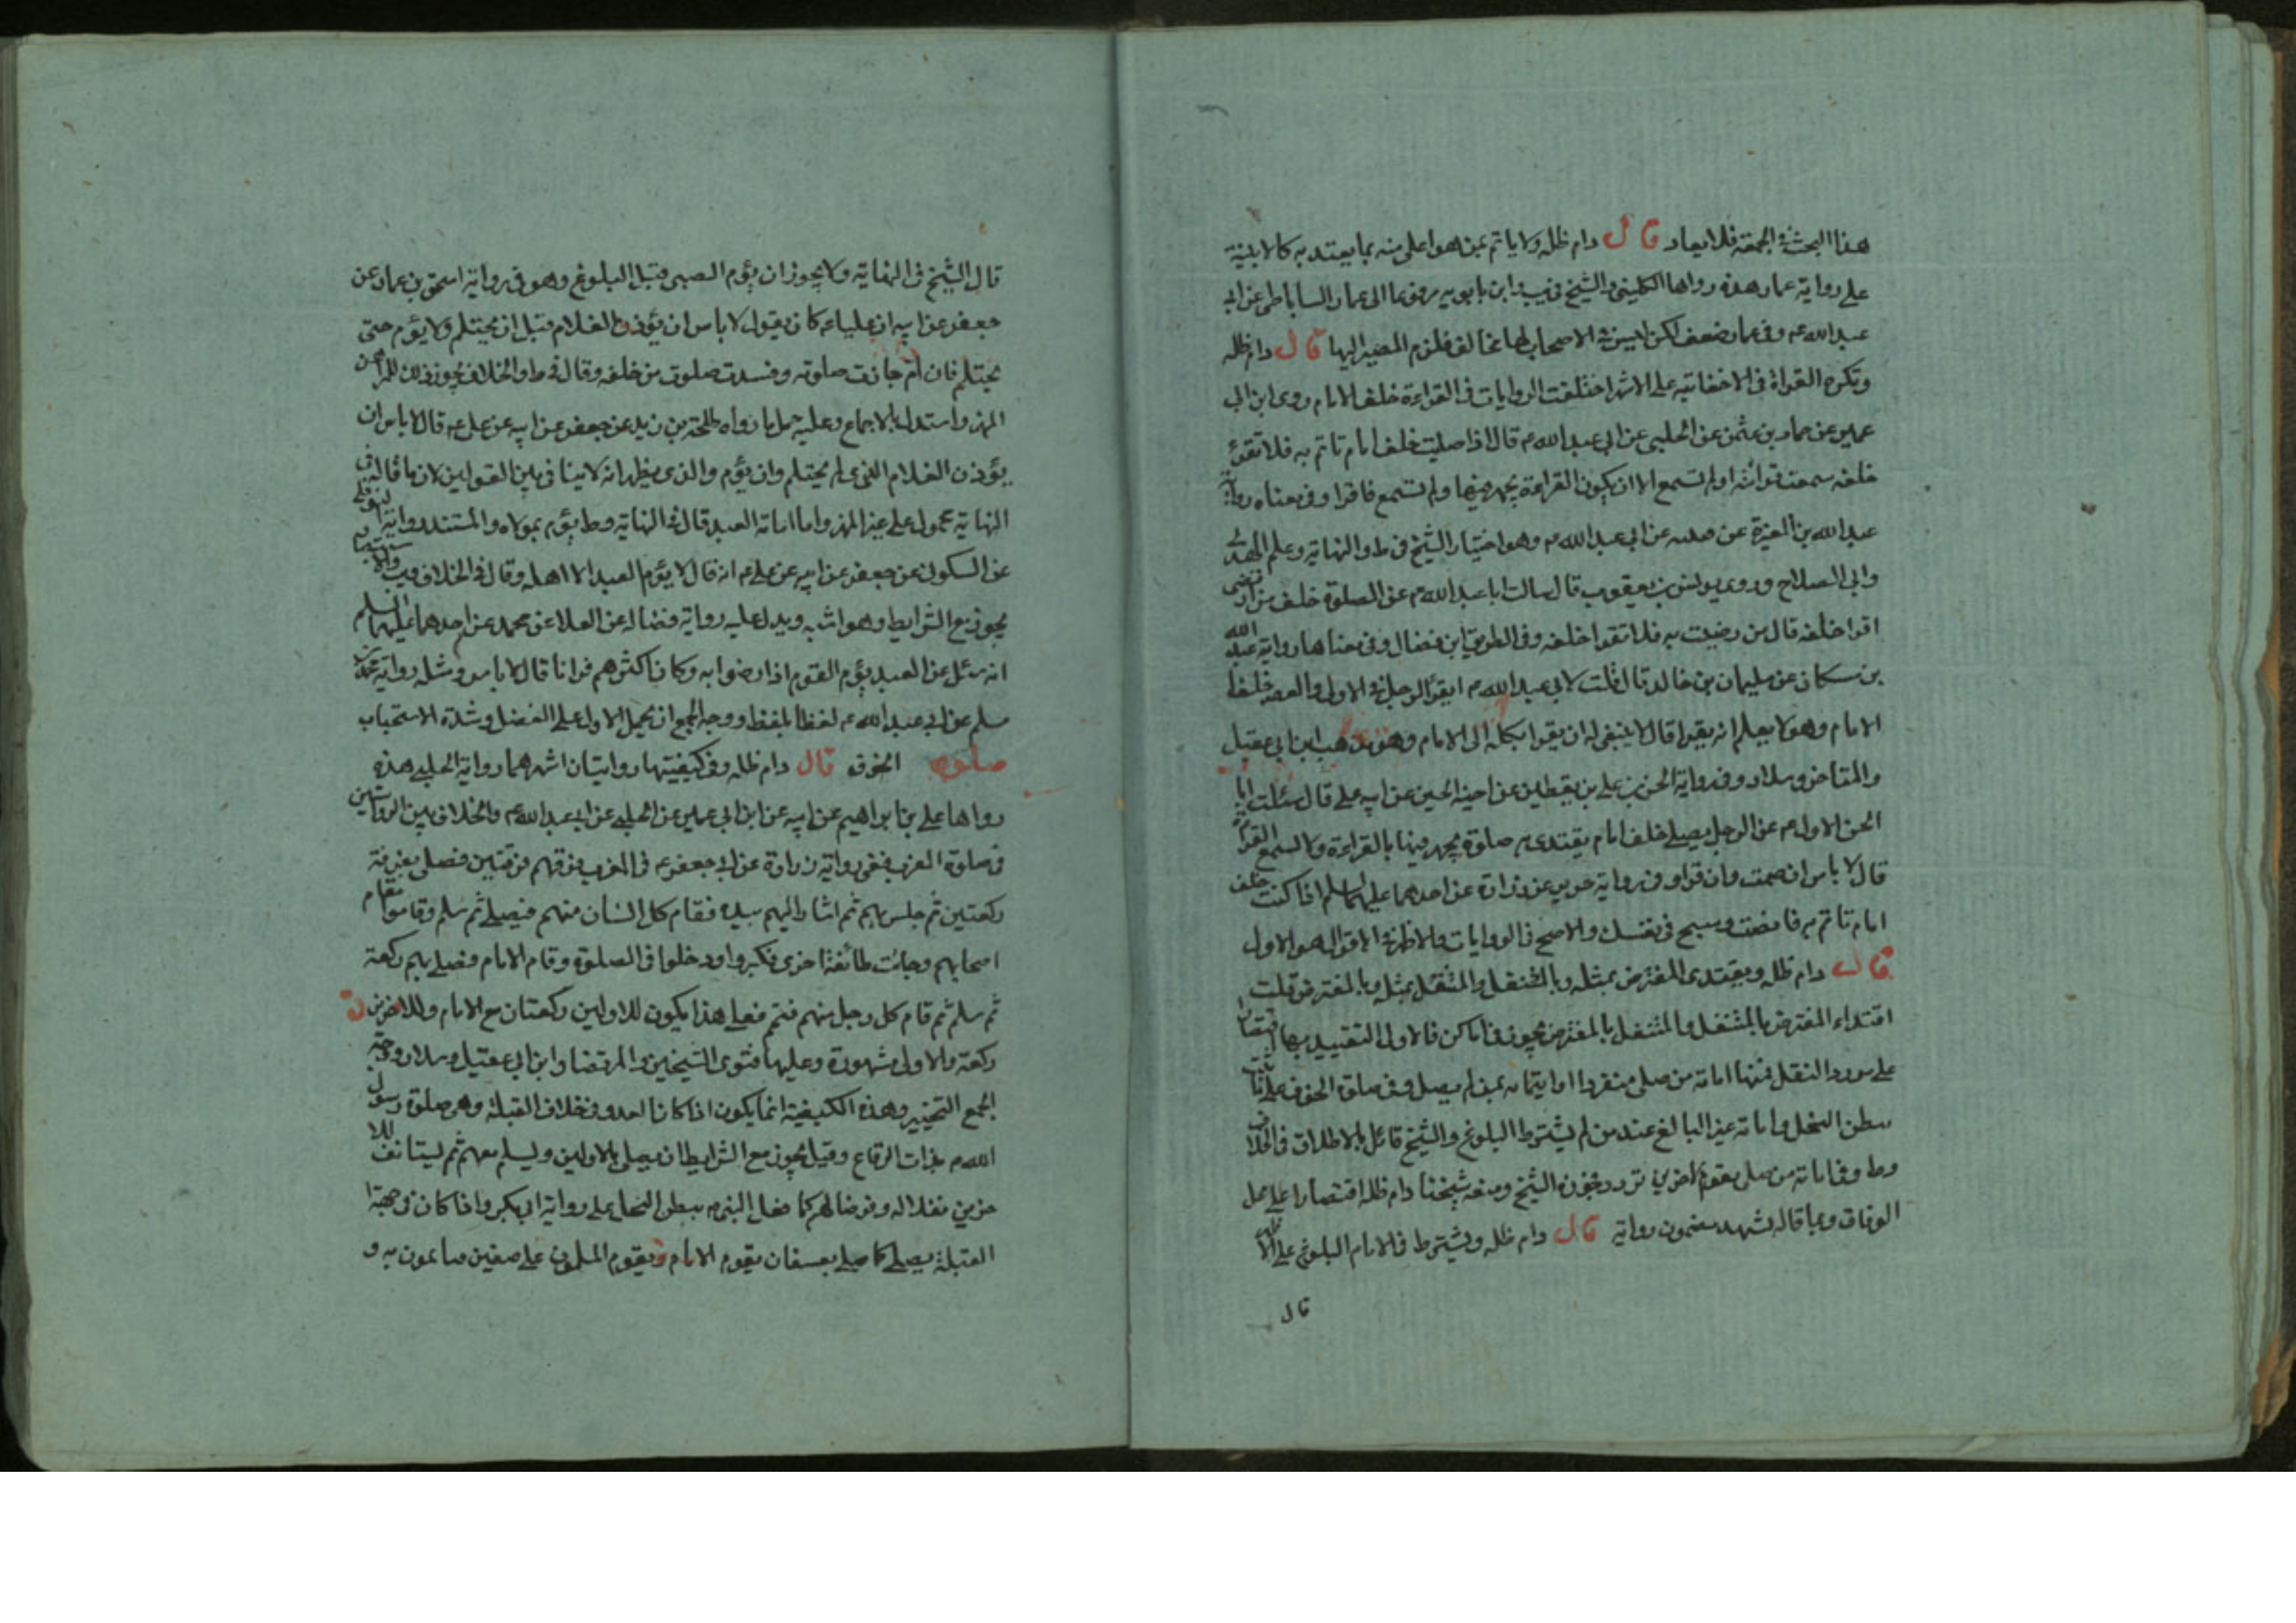 هذا البحث في الجمعة فلا يعاد قال دام ظله ولا ياتم بمن هو اعلى منه بما يعتد به كالابنية
على رواية عمار هذه رواها الكليني والشيخ في يب وابن بابويه مرفوعا الى عمار الساباطي عن ابي
عبد الله ع وفي عمار ضعف لكن ليس في الاصحاب لها مخالف فلزم المصير اليها قال دام ظله
وتكره القراة في الاخفاتيه على الاشهر اختلفت الروايات في القراءة خلف الامام روى ابن ابي
عمير عن حماد بن عثمن عن الحلبي عن ابي عبد الله ع قال اذا صليت خلف امام تاتم به فلا تقرئ
خلفه سمعت قرائته او لم تسمع الا ان يكون القراءة يجهر فيها ولم تسمع فاقرا وفي معناه رواية
عبد الله بن المغيرة عن عن ابي عبد الله ع وهو اختيار الشيخ في ط والنهاية وعلم الهدى
وابي الصلاح وروى يونس بن يعقوب قال سالت ابا عبد الله ع عن الصلوة خلف من ارتضى
اقرا خلفه قال من رضيت به فلا تقرا خلفه وفي الطريق ابن فضال وفي معناها رواية عبد الله
بن مسكان عن سليمان بن خالد قال قلت لابي عبد الله ع ايقرأ الرجل في الاولى والعصر خلف
الامام وهو لا يعلم انه يقرا قال لا ينبغي له ان يقرا يكله الى الامام وهو مذهب ابن ابي عقيل
والمتاخر وسلار وفي رواية الحسن بن علي بن يقطين عن اخيه الحسين عن ابيه علي قال سئلت ابا
الحسن الاول ع عن الرجل يصلي خلف امام يقتدى به صلوة يجهر فيها بالقراءة ولا يسمع القراة
قال لا باس ان صمت وان قرا وفي رواية حريز عن زرارة عن احدهما عليهما السلم اذا كنت خلف
امام تاتم به فانصت وسبح في نفسك والاصح في الروايات والاظهر في الاقوال هو الاول
قال دام ظله ويقتدى المفترض بمثله وبالمتنفل والمتنفل بمثله وبالمفترض قلت
اقتداء المفترض بالمتنفل والمتنفل بالمفترض يجوز في اماكن فالاولى التقييد بها اقتصارا
على مورد النقل فمنها امامة من صلى منفردا او ايتمامه بمن لم يصل وفي صلوة الخوف على
ببطن النخل وامامة غير البالغ عند من لم يشترط البلوغ والشيخ قائل بالاطلاق في الخلاف
وط وفي امامة من صلى بقوم لاخرين تردد يجوزه الشيخ ومنعه شيخنا دام ظله اقتصارا على محل
الوفاق وبما قاله تشهد مضمون رواية قال دام ظله ويشترط في الامام البلوغ على الا
قال
قال الشيخ في النهاية ولا يجوز ان يؤم الصبي قبل البلوغ وهو في رواية اسحق بن عمار عن
جعفر عن ابيه ان عليا ع كان يقول لا باس ان يؤذن الغلام قبل ان يحتلم ولا يؤم حتى
يحتلم فان ام جازت صلوته وفسدت صلوة من خلفه وقال في ط والخلاف يجوز ذلك للمراهق
المميز واستدل بالاجماع وعليه حمل ما رواه طلحة بن زيد عن جعفر عن ابيه عن علي ع قال لا باس ان
يؤذن الغلام الذي لم يحتلم وان يؤم والذي يظهر انه لا ينافي بين القولين لان ما قاله في
النهاية محمول على غير المميز واما امامة العبد قال في النهاية وط يؤم بمولاه والمستند رواية النوفلي
عن السكوني عن جعفر عن ابيه عن علي ع انه قال لا يؤم العبد الا اهله وقال في الخلاف ويب
يجوز مع الشرايط وهو اشبه ويدل عليه رواية فضاله عن العلا عن محمد عن احدهما عليهما السلم
انه سئل عن العبد يؤم القوم اذا رضوا به وكان اكثرهم قرانا قال لا باس ومثله رواية محمد بن
مسلم عن ابي عبد الله ع لفظا بلفظ ووجه الجمع ان يحمل الاول على الفضل وشدة الاستحباب
صلوة الخوف قال دام ظله وفي كيفيتها روايتان اشهرهما رواية الحلبي هذه
رواها علي بن ابراهيم عن ابيه عن ابن ابي عمير عن الحلبي عن ابي عبد الله ع والخلاف بين الروايتين
في صلوة المغرب ففي رواية زرارة عن ابي جعفر ع في المغرب فرقهم فرقتين فصلى بفرقة
ركعتين ثم جلس بهم ثم اشار اليهم بيده فقام كل انسان منهم فيصلي ثم سلم وقاموا مقام
اصحابهم وجائت طائفة اخرى فكبروا ودخلوا في الصلوة وقام الامام فصلى بهم ركعة
ثم سلم ثم قام كل رجل منهم فتم فعلى هذا يكون للاولين ركعتان مع الامام وللاخرين
ركعة والاولى مشهورة وعليها فتوى الشيخين والمرتضا وابن ابي عقيل وسلار ووجه
الجمع التخيير وهذه الكيفية انما يكون اذا كان العدو في خلاف القبلة وهي صلوة رسول
الله ص بذات الرقاع وقيل يجوز مع الشرايط ان يصلي بالاولين ويسلم معهم ثم ليستانف للا
خرين نفلا له وفرضا لهم كما فعل النبي ص ببطن النخل على رواية ابي بكر واذا كان في جهة
القبلة يصلي كما صلى بعسفان يقوم الامام ويقوم المسلمون على صفين صائمون به و